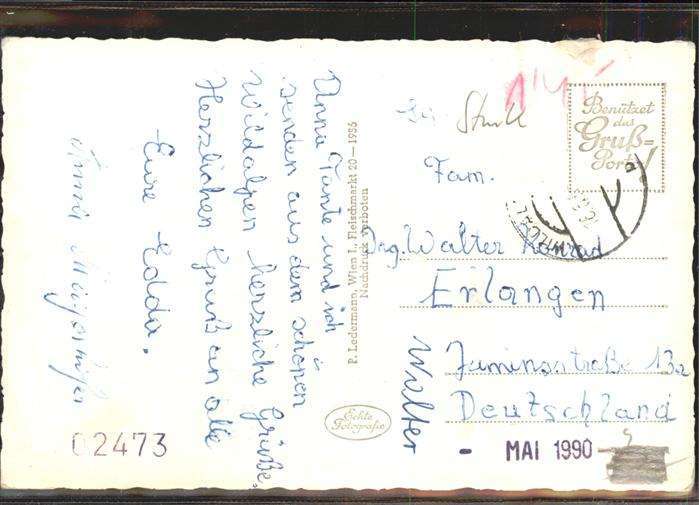 Anna Tante und ich
senden aus dem schönen
Wildalpen herzliche Grüße.
Herzlichen Gruß an alle
Eure Edda.
02473
P. Ledermann, Wien I., Fleischmarkt 20 – 1936
Nachdruck verboten
Echte
Fotografie
Benützet
das
Gruß=
Porto!
Fam.
Ing. Walter Konrad
Erlangen
straße 13a
Deutschland
Walter
- MAI 1990 -